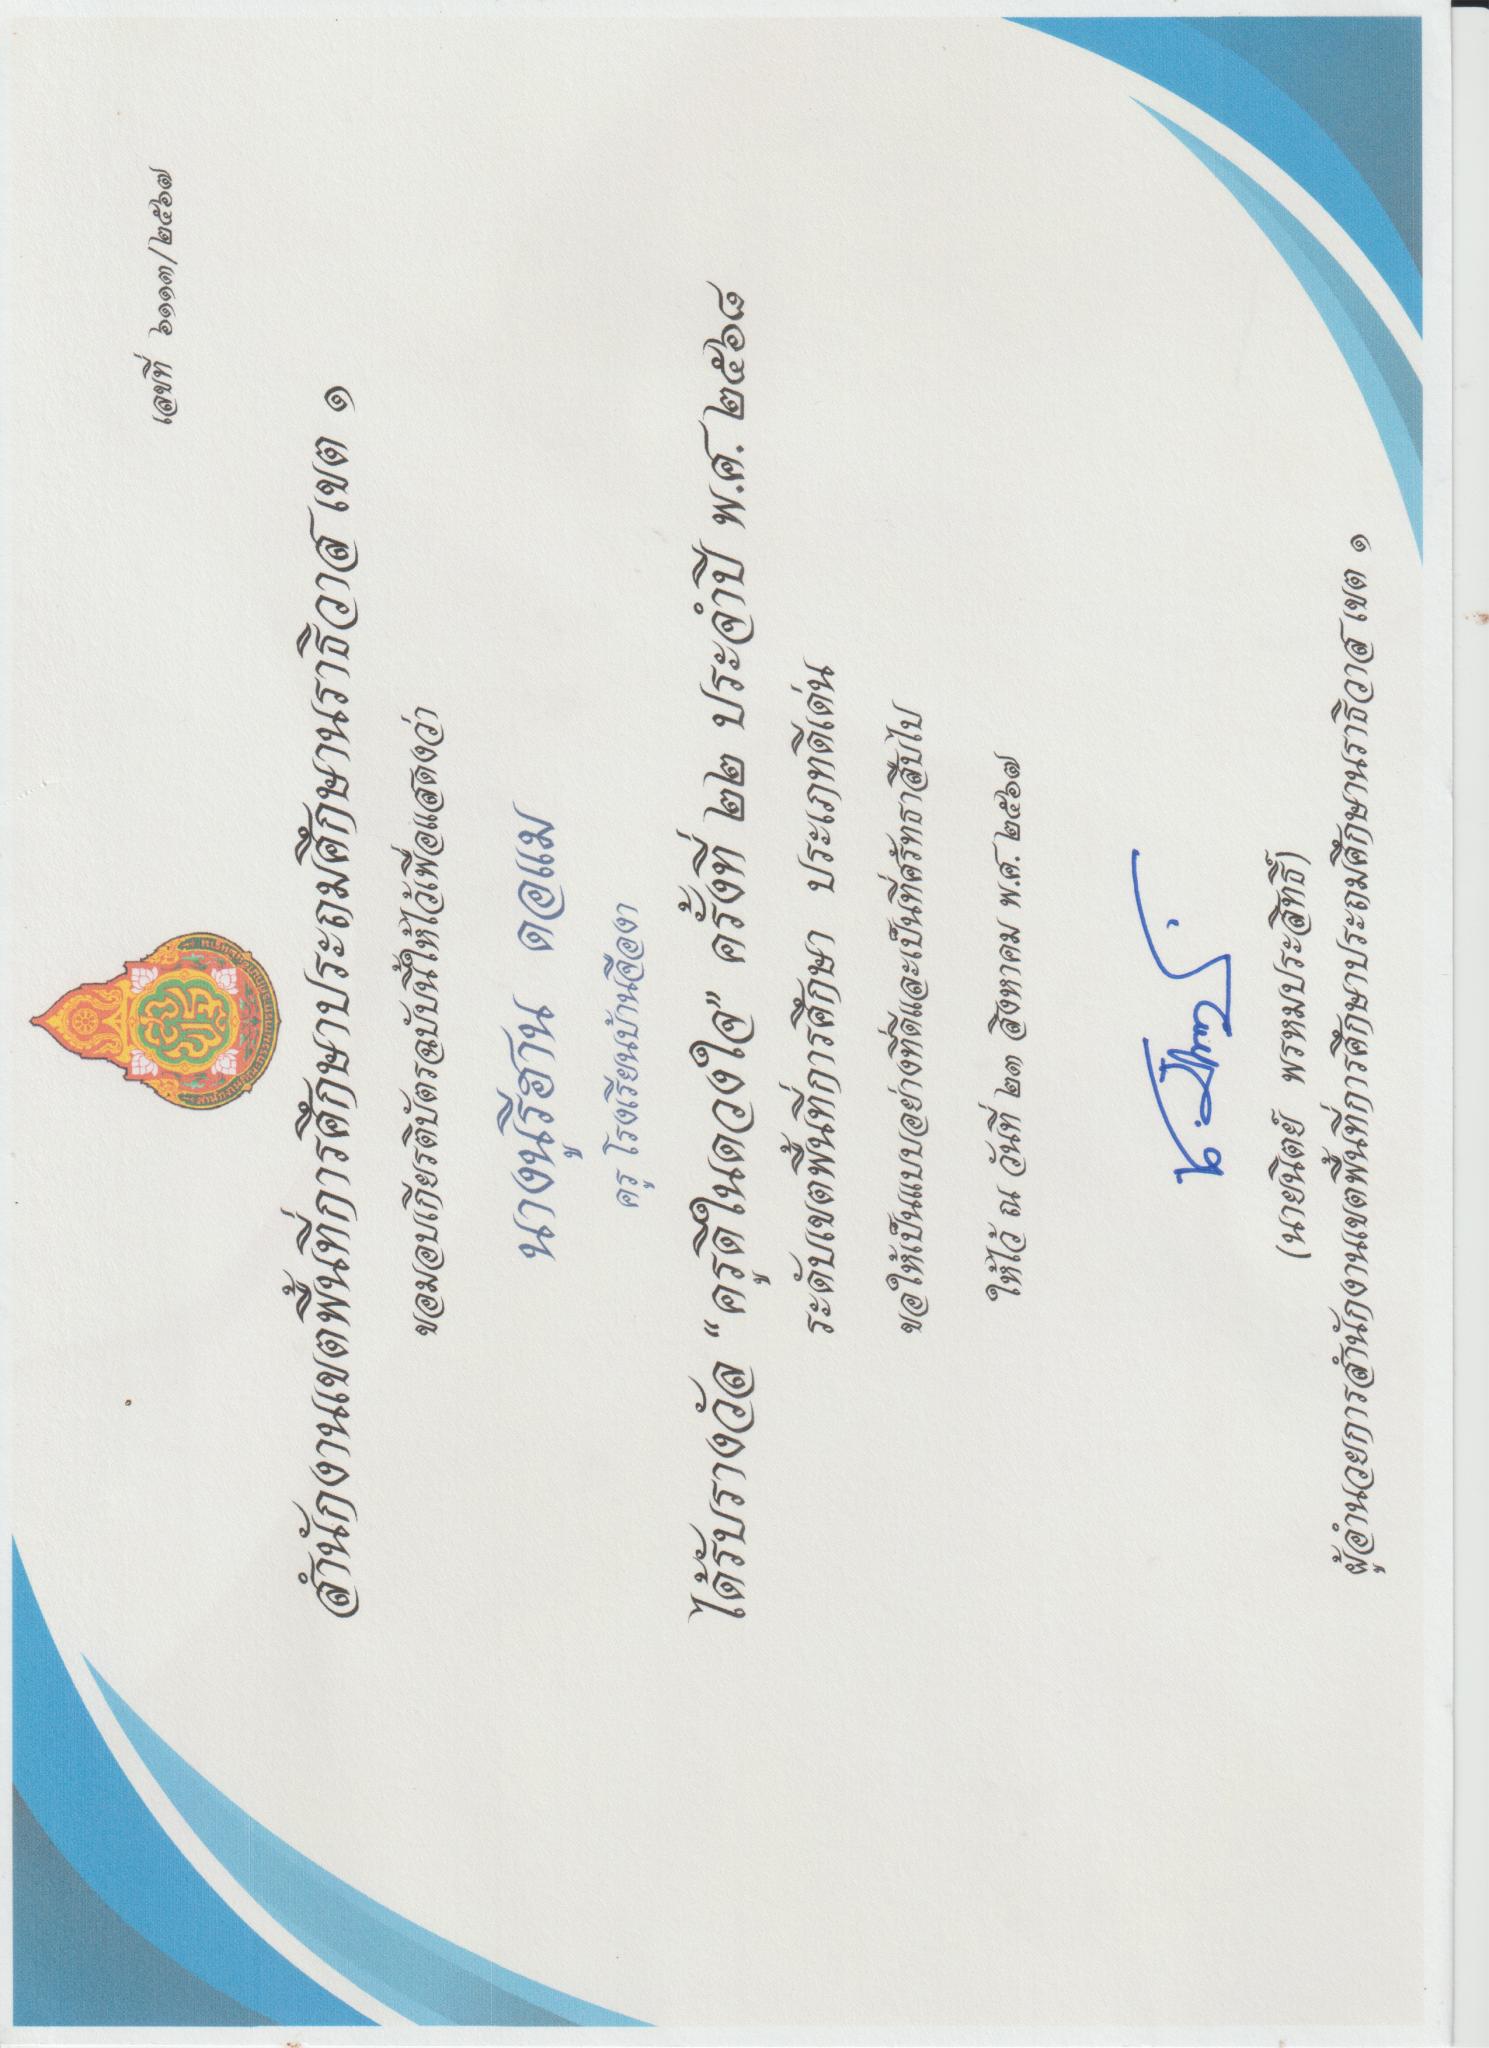 เลขที่ ๖๑๑๓/๒๕๖๗
สำนักงานเขตพื้นที่การศึกษาประถมศึกษานราธิวาส เขต ๑
ขอมอบเกียรติบัตรฉบับนี้ให้ไว้เพื่อแสดงว่า
นางนูรีฮาน ดอแม
ครู โรงเรียนบ้านจืองา
ได้รับรางวัล “ครูดีในดวงใจ” ครั้งที่ ๒๒ ประจำปี พ.ศ. ๒๕๖๘
ระดับเขตพื้นที่การศึกษา ประเภทดีเด่น
ขอให้เป็นแบบอย่างที่ดีและเป็นที่ศรัทธาสืบไป
ให้ไว้ ณ วันที่ ๒๓ สิงหาคม พ.ศ. ๒๕๖๗
(นายนิตย์ พรหมประสิทธิ์)
ผู้อำนวยการสำนักงานเขตพื้นที่การศึกษาประถมศึกษานราธิวาส เขต ๑